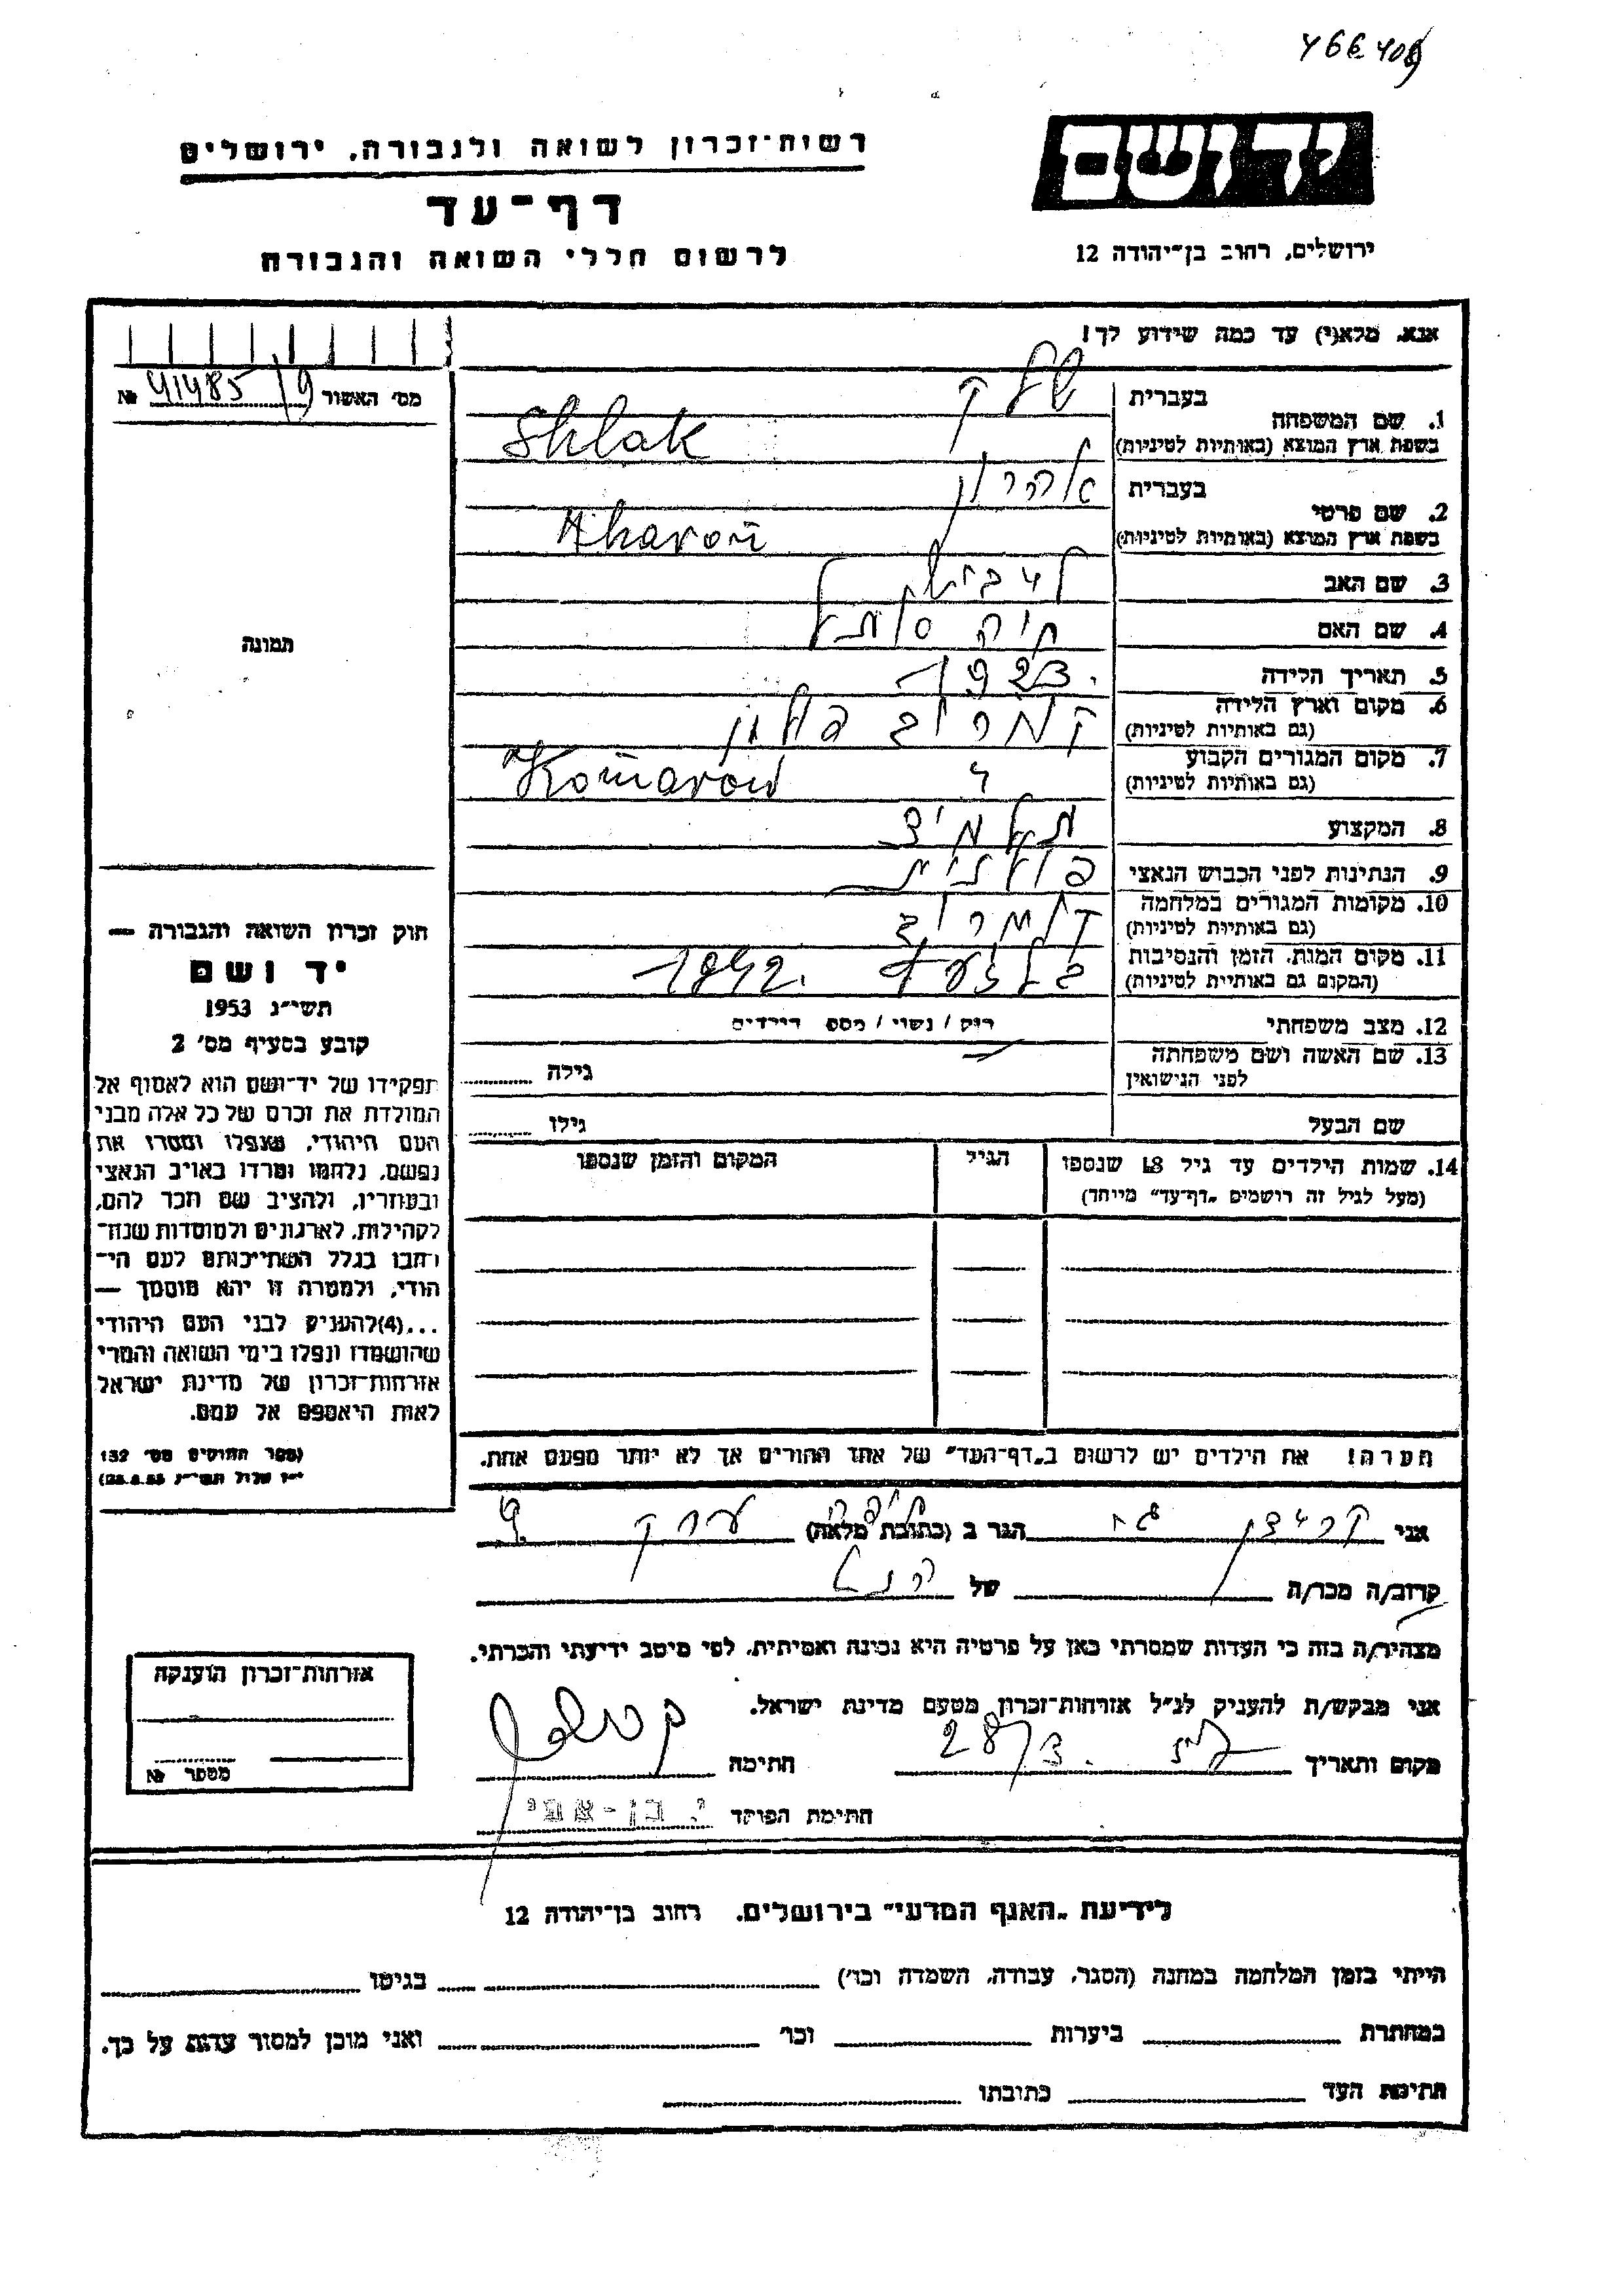 466409
יד ושם
ירושלים, רחוב בן־יהודה 12
רשות־זכרון לשואה ולגבורה, ירושלים
דף־עד
לרשום חללי השואה והגבורה
אנא, מלא(י) עד כמה שידוע לך!
מס׳ האשור 41485/9 №
תמונה
1. שם המשפחה
בעברית שלק
בשפת ארץ המוצא (באותיות לטיניות) Shlak
2. שם פרטי
בעברית אהרון
בשפת ארץ המוצא (באותיות לטיניות) Aharon
3. שם האב לייביש
4. שם האם
5. תאריך הלידה 1923.
6. מקום וארץ הלידה קמרוב פולין
(גם באותיות לטיניות)
7. מקום המגורים הקבוע Komarow
(גם באותיות לטיניות)
8. המקצוע תלמיד
9. הנתינות לפני הכבוש הנאצי פולנית
10. מקומות המגורים במלחמה קומרוב
(גם באותיות לטיניות)
11. מקום המות, הזמן והנסיבות בלזעץ 1942.
(המקום גם באותיות לטיניות)
12. מצב משפחתי רוק / נשוי / מספר הילדים
13. שם האשה ושם משפחתה
לפני הנישואין גילה
שם הבעל גילו
14. שמות הילדים עד גיל 18 שנספו הגיל המקום והזמן שנספו
(מעל לגיל זה רושמים „דף־עד” מייחד)
הערה! את הילדים יש לרשום ב„דף־העד” של אחד ההורים אך לא יותר מפעם אחת.
חוק זכרון השואה והגבורה —
יד ושם
תשי״ג 1953
קובע בסעיף מס׳ 2
תפקידו של יד־ושם הוא לאסוף אל
המולדת את זכרם של כל אלה מבני
העם היהודי, שנפלו ומסרו את
נפשם, נלחמו ומרדו באויב הנאצי
ובעוזריו, ולהציב שם וזכר להם,
לקהילות, לארגונים ולמוסדות שנח־
רבו בגלל השתייכותם לעם הי־
הודי, ולמטרה זו יהא מוסמך —
...(4)להעניק לבני העם היהודי
שהושמדו ונפלו בימי השואה והמרי
אזרחות־זכרון של מדינת ישראל
לאות היאספם אל עמם.
(ספר החוקים מס׳ 132
י״ז אלול תשי״ג 28.8.53)
אני הגר ב (כתובת מלאה) חיפה 9
קרוב/ה מכר/ה של הנ״ל
מצהיר/ה בזה כי העדות שמסרתי כאן על פרטיה היא נכונה ואמיתית, לפי מיטב ידיעתי והכרתי.
אני מבקש/ת להעניק לנ״ל אזרחות־זכרון מטעם מדינת ישראל.
מקום ותאריך 28/3. חתימה
חתימת הפוקד י. בן-אמי
אזרחות־זכרון הוענקה
מספר №
לידיעת „האגף המדעי” בירושלים, רחוב בן־יהודה 12
הייתי בזמן המלחמה במחנה (הסגר, עבודה, השמדה וכו׳) בגיטו
במחתרת ביערות וכו׳ ואני מוכן למסור עדות על כך.
חתימת העד כתובתו